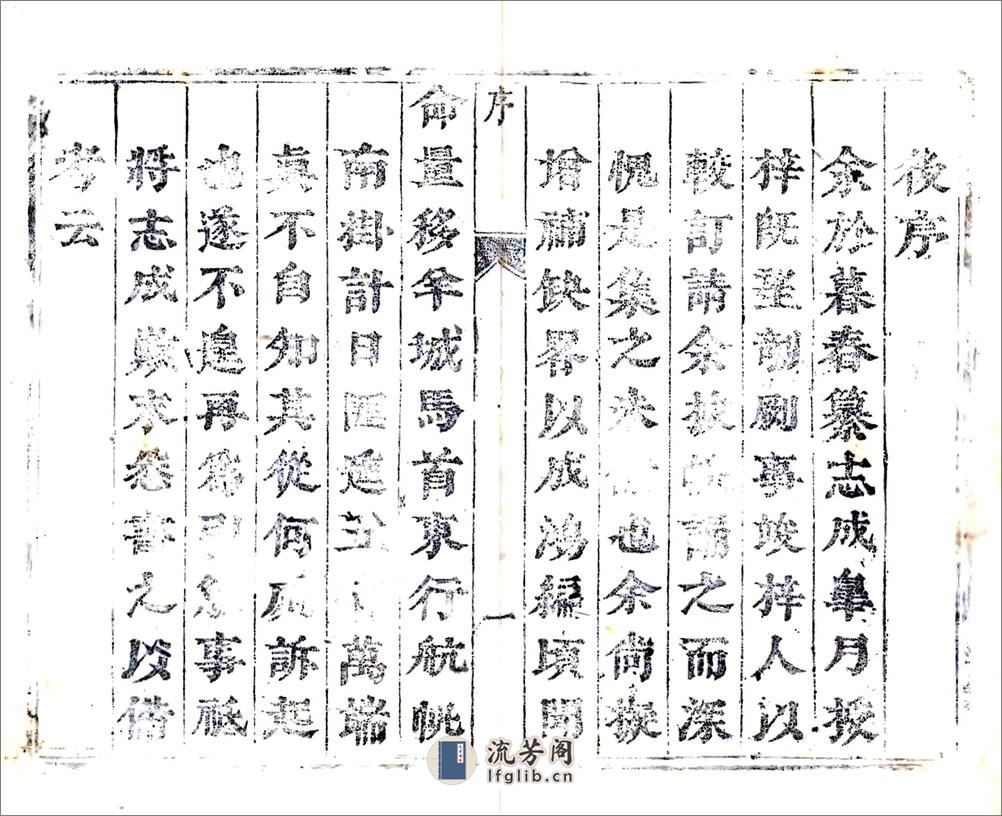 後序
余於暮春纂志成皐月授
梓旣至剞劂事竣梓人以
較訂請余披 誦之而深
愧是集之 也余尚擬
增補缺畧以成鴻編頃聞
序
一
命量移 城馬首東行航 
南掛計日匪遥 萬端
眞不自知其從何 訴起
也遂不遑再爲引 事祗
將志成 末卷書之以備
考云
流芳阁
lfglib.cn